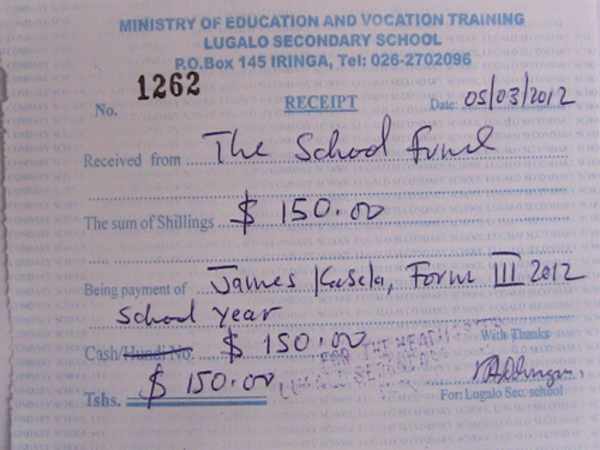 MINISTRY OF EDUCATION AND VOCATION TRAINING
LUGALO SECONDARY SCHOOL
P.O.Box 145 IRINGA, Tel: 026-2702096
No. 1262 RECEIPT Date: 05/03/2012
Received from The School Fund
The sum of Shillings $ 150.00
Being payment of James Kasela, Form III 2012
School year
Cash/Hundi No. $ 150.00 With Thanks
FOR THE HEADMASTER
LUGALO SECONDARY
Tshs. $ 150.00
For: Lugalo Sec. school